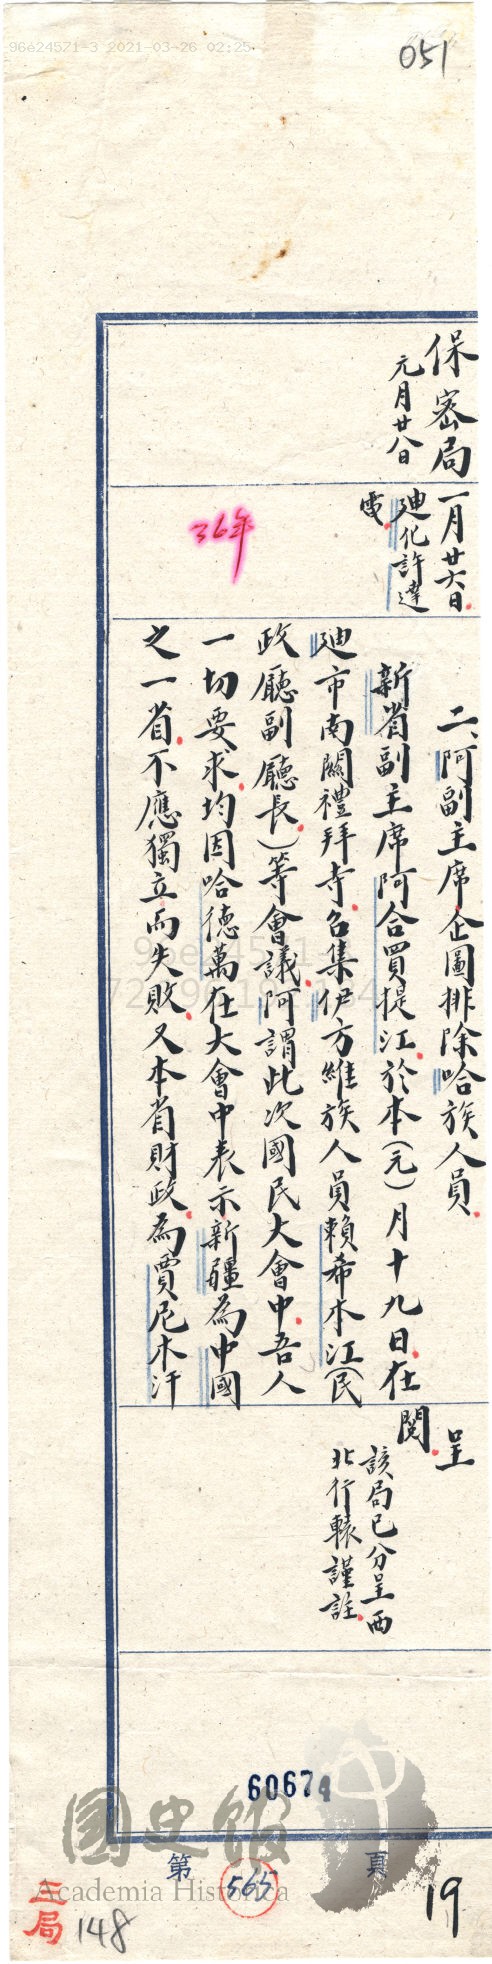 96e24571-3 2021-03-26 02:25
051
保密局
元月廿八日
一月廿六日
迪化許達
電
36年
二、阿副主席企圖排除哈族人員
新省副主席阿合買提江於本(元)月十九日在
迪市南關禮拜寺召集伊方維族人員賴希木江(民
政廳副廳長)等會議阿謂此次國民大會中吾人
一切要求均因哈德萬在大會中表示新疆為中國
之一省不應獨立而失敗又本省財政為賈尼木汗
呈
閱
該局已分呈西
北行轅謹註
60674
國史館
Academia Historica
第 565 頁
19
三局
148